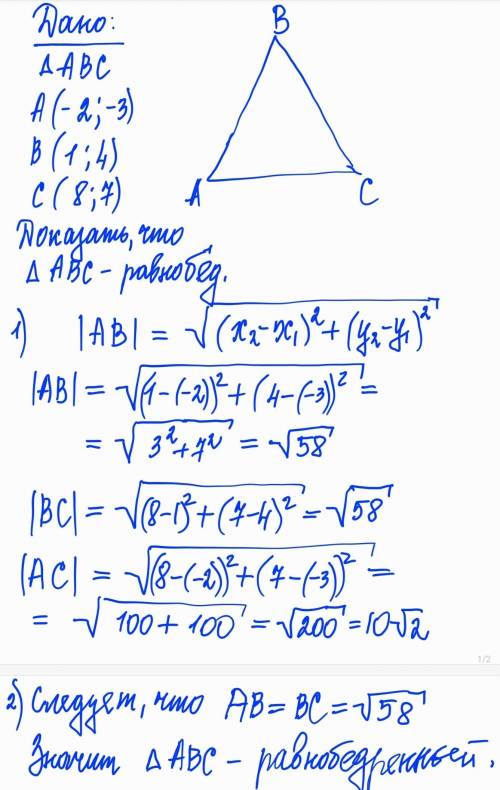 Дано:
B
Δ ABC
A(-2;-3)
B(1;4)
C(8;7)
A
C
Доказать, что
Δ ABC - равнобед.
1) |AB| = √((x₂-x₁)² + (y₂-y₁)²)
|AB| = √((1-(-2))² + (4-(-3))²) =
= √(3²+7²) = √58
|BC| = √((8-1)² + (7-4)²) = √58
|AC| = √((8-(-2))² + (7-(-3))²) =
= √(100+100) = √200 = 10√2
1/2
2) Следует, что AB = BC = √58
Значит Δ ABC - равнобедренный.